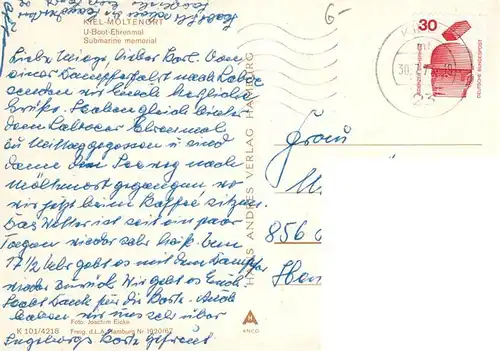 KIEL-MÖLTENORT
U-Boot-Ehrenmal
Submarine memorial
Liebe Mieze, lieber Karl. Von
einer Dampferfahrt nach Laboe
senden wir Euch herzliche
Grüße. Haben gleich hinter
dem Laboeer Ehrenmal
zu Mittag gegessen u sind
dann den Seeweg nach
Möltenort gegangen wo
wir jetzt beim Kaffee sitzen.
Das Wetter ist seit ein paar
Tagen wieder sehr heiß. Um
17 1/2 Uhr geht es mit dem Dampfer
wieder zurück. Wir
Dank für die Karte. Auch
haben wir uns sehr über
Ingeborgs Karte gefreut.
K 101/4218
Foto: Joachim Eicke
Freig. d.L.A. Hamburg Nr 1920/67
HANS ANDRES VERLAG HAMBURG
ANCO
6-
30
DEUTSCHE BUNDESPOST
30.7.7
23
Frau
M
856